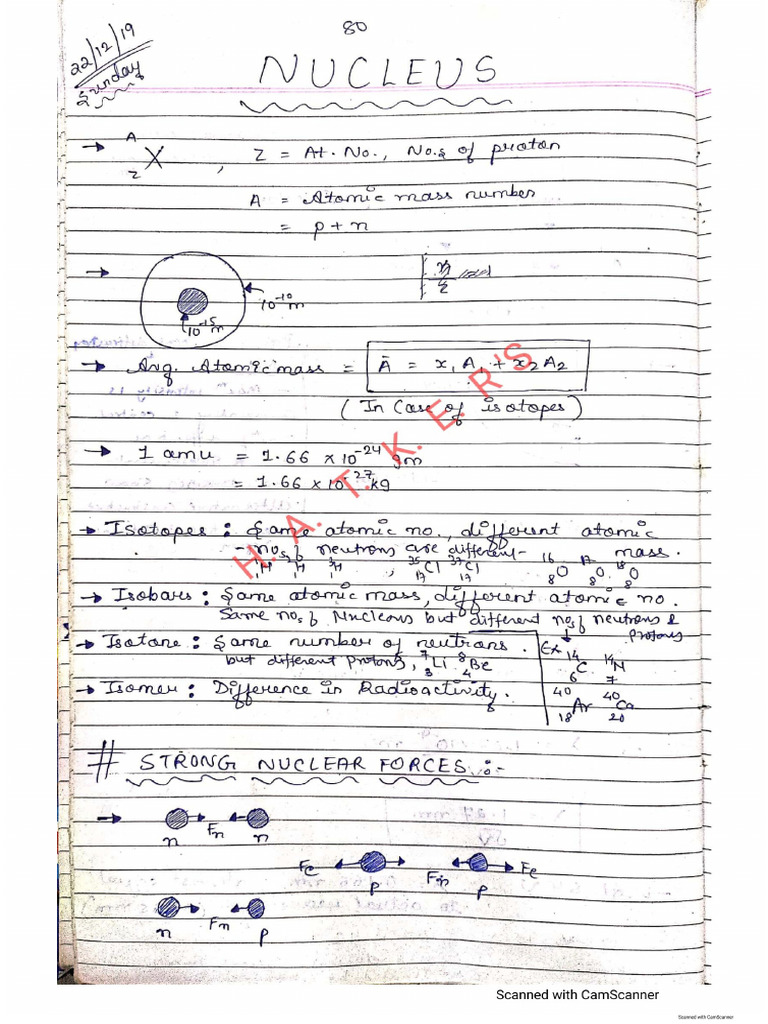 80
22/12/19
Sunday
NUCLEUS
→ A Z X , Z = At. No., No.s of proton
A = Atomic mass number
= p + n
→ 10⁻¹⁰m
10⁻¹⁵m
→ Avg. Atomic mass = Ā = x₁A₁ + x₂A₂
(In Case of isotopes)
→ 1 amu = 1.66 × 10⁻²⁴ gm
= 1.66 × 10⁻²⁷ kg
H. A. T. K. E. R'S
→ Isotopes : Same atomic no., different atomic
- nos of neutrons are different- mass.
¹₁H ²₁H ³₁H , ³⁵₁₇Cl ³⁷₁₇Cl ¹⁶₈O ¹⁷₈O ¹⁸₈O
→ Isobars : Same atomic mass, different atomic no.
Same nos of Nucleons but different nos of neutrons & protons
→ Isotone : Same number of neutrons.
but different protons, ⁷₃Li ⁸₄Be
Ex ¹⁴₆C ¹⁴₇N
⁴⁰₁₈Ar ⁴⁰₂₀Ca
→ Isomer : Difference in Radioactivity.
# STRONG NUCLEAR FORCES :-
→ n Fn n
Fe p Fn p Fe
n Fn p
Scanned with CamScanner
Scanned with CamScanner